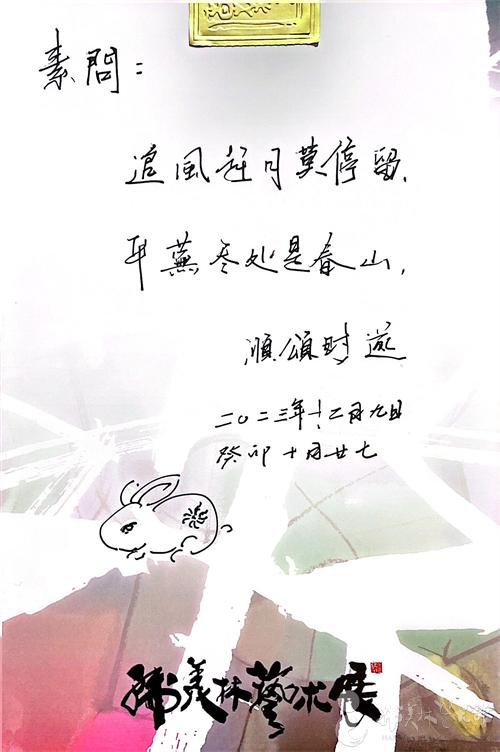 素問：
追風赶月莫停留、
平蕪尽处是春山，
順頌时
二〇二三年十二月九日
癸卯十月廿七
韩美林藝术展